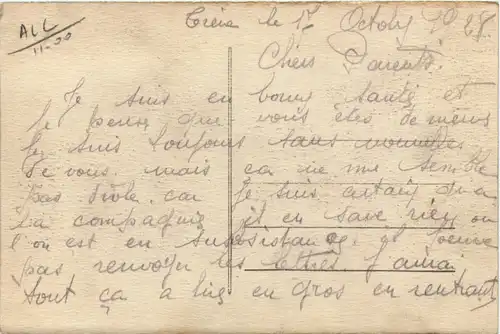 ALL
11-30
le 17 Octobre 1928.
Chers Parents.
Je suis en bonne santé et
je pense que vous êtes de mème
je suis toujours sans nouvelles
De vous. mais ça ne me semble
pas drole. car je suis
La compagnie en save rien ou
l'on est en Subsistance, il
pas renvoyer les lettres. J'aurai
tout ça a lire en gros en rentrant